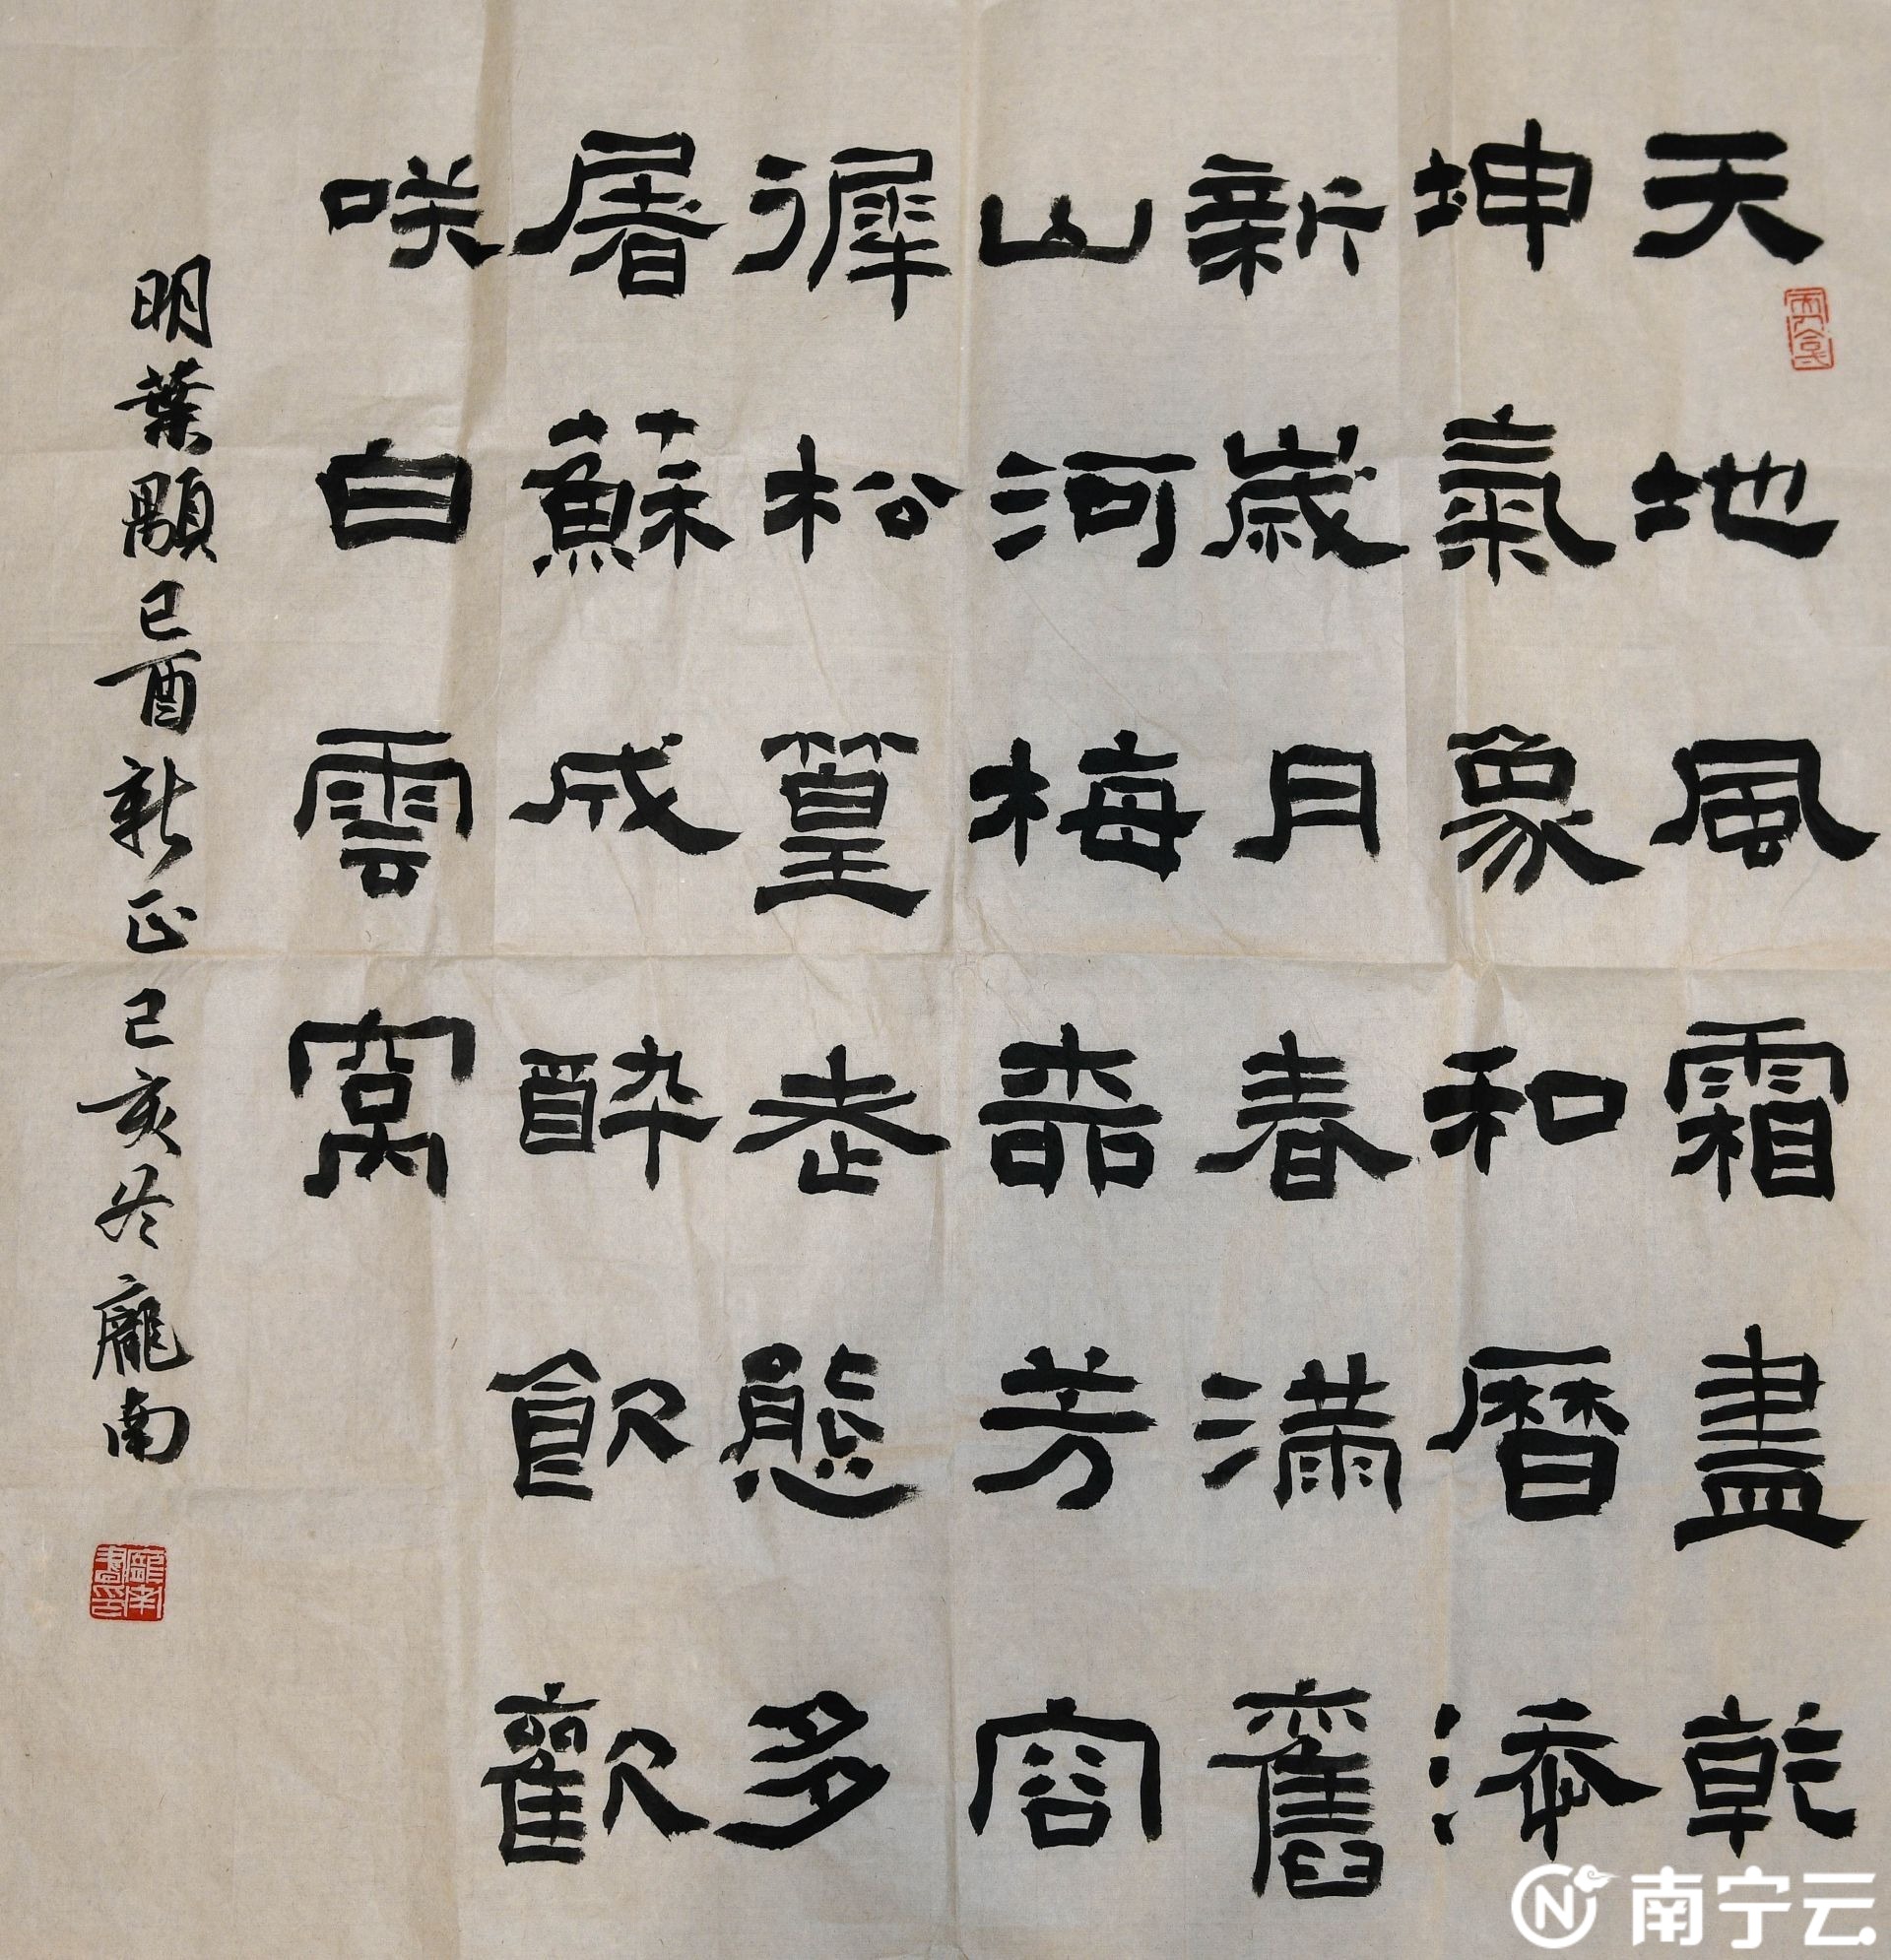 天地風霜盡乾
坤氣象和曆添
新歲月春滿舊
山河梅蕊芳容
徲松篁老態多
屠蘇成醉飲歡
咲白雲窩
明葉顒己酉新正己亥冬龐南
龐南書印
南宁云